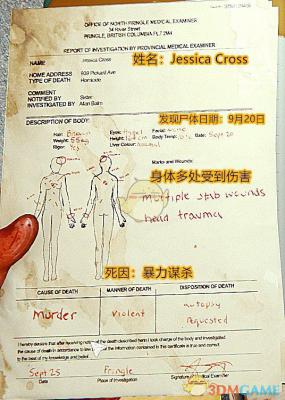 OFFICE OF NORTH PRINGLE MEDICAL EXAMINER
34 River Street
PRINGLE, BRITISH COLUMBIA
REPORT OF INVESTIGATION BY PROVINCIAL MEDICAL EXAMINER
NAME Jessica Cross
姓名：Jessica Cross
HOME ADDRESS 909 Pickard Ave
TYPE OF DEATH Homicide
COMMENT
NOTIFIED BY Sister
INVESTIGATED BY Allan Bairn
发现尸体日期：9月20日
DESCRIPTION OF BODY:
Hair: Brown Eyes: Hazel Facial: none
Weight: 55kg Height: Body Temp: Date: Sept 20
Rigor: Yes Liver Colour:
Marks and Wounds:
身体多处受到伤害
multiple stab wounds
head trauma
死因：暴力谋杀
CAUSE OF DEATH MANNER OF DEATH DISPOSITION OF DEATH
Murder Violent autopsy
requested
I hereby declare that after receiving notice of the death described herein I took charge of the body and investigated
the cause of death in accordance to law and that the information contained in this certificate is true and correct
to the best of my knowledge and belief.
Sept 25 Pringle
Date Place of Investigation Signature of Medical Examiner
3DMGAME